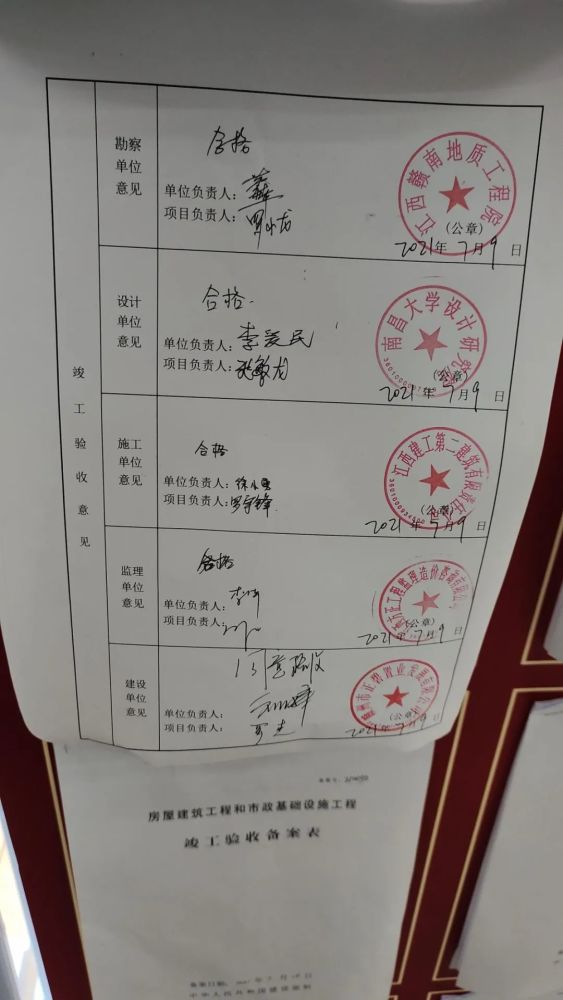 竣工验收意见
勘察单位意见
合格
单位负责人：
项目负责人：
江西赣南地质工程院
(公章)
2021年7月9日
设计单位意见
合格.
单位负责人：李爱民
项目负责人：张敏龙
南昌大学设计研究院
(公章)
2021年7月9日
施工单位意见
合格
单位负责人：
项目负责人：罗宇锋
江西建工第二建筑有限责任公司
(公章)
2021年7月9日
监理单位意见
合格
单位负责人：
项目负责人：
工程监理造价咨询有限公司
(公章)
2021年7月9日
建设单位意见
同意验收
单位负责人：
项目负责人：
置业发展有限公司
(公章)
2021年7月9日
房屋建筑工程和市政基础设施工程
竣工验收备案表
中华人民共和国建设部制